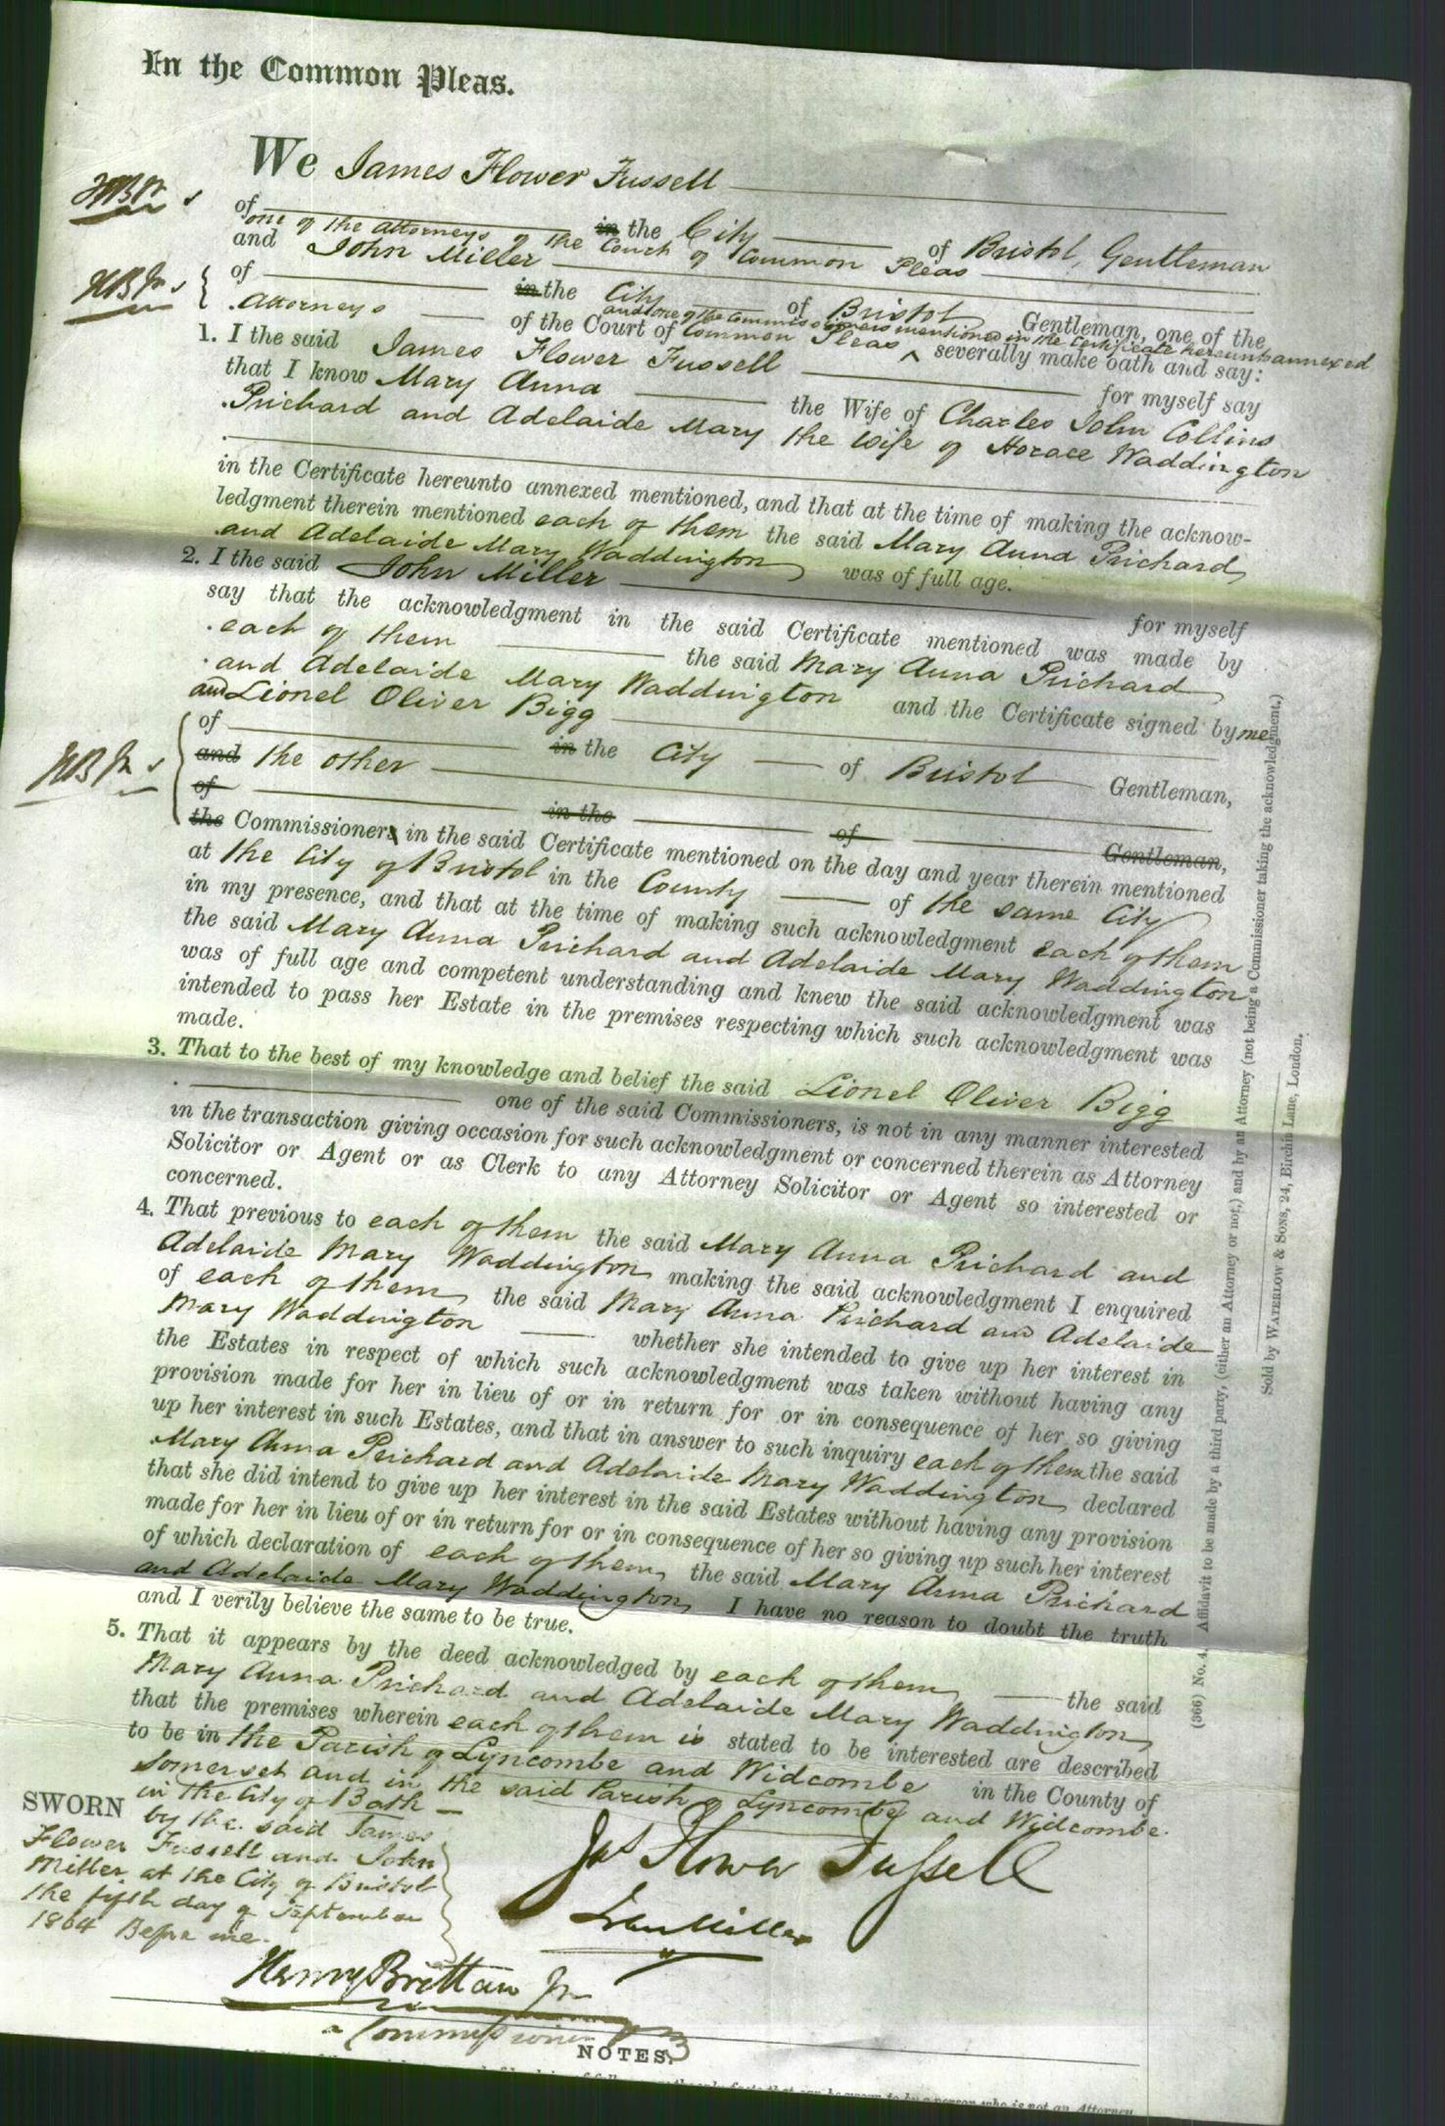 In the Common Pleas.
We James Flower Fussell
of one of the attorneys of the Court of Common Pleas in the City of Bristol, Gentleman
and John Miller
of in the City of Bristol Gentleman, one of the
Attorneys of the Court of Common Pleas and one of the Commissioners mentioned in the Certificate hereunto annexed severally make oath and say:
1. I the said James Flower Fussell for myself say
that I know Mary Anna the Wife of Charles John Collins
Prichard and Adelaide Mary the wife of Horace Waddington
in the Certificate hereunto annexed mentioned, and that at the time of making the acknow-
ledgment therein mentioned each of them the said Mary Anna Prichard
and Adelaide Mary Waddington was of full age.
2. I the said John Miller for myself
say that the acknowledgment in the said Certificate mentioned was made by
each of them the said Mary Anna Prichard
and Adelaide Mary Waddington and the Certificate signed by me
and Lionel Oliver Bigg
of in the City of Bristol Gentleman,
and the other
of in the of Gentleman,
the Commissioners in the said Certificate mentioned on the day and year therein mentioned
at the City of Bristol in the County of the same City
in my presence, and that at the time of making such acknowledgment each of them
the said Mary Anna Prichard and Adelaide Mary Waddington
was of full age and competent understanding and knew the said acknowledgment was
intended to pass her Estate in the premises respecting which such acknowledgment was
made.
3. That to the best of my knowledge and belief the said Lionel Oliver Bigg
one of the said Commissioners, is not in any manner interested
in the transaction giving occasion for such acknowledgment or concerned therein as Attorney
Solicitor or Agent or as Clerk to any Attorney Solicitor or Agent so interested or
concerned.
4. That previous to each of them the said Mary Anna Prichard and
Adelaide Mary Waddington making the said acknowledgment I enquired
of each of them the said Mary Anna Prichard and Adelaide
Mary Waddington whether she intended to give up her interest in
the Estates in respect of which such acknowledgment was taken without having any
provision made for her in lieu of or in return for or in consequence of her so giving
up her interest in such Estates, and that in answer to such inquiry each of them the said
Mary Anna Prichard and Adelaide Mary Waddington declared
that she did intend to give up her interest in the said Estates without having any provision
made for her in lieu of or in return for or in consequence of her so giving up such her interest
of which declaration of each of them the said Mary Anna Prichard
and Adelaide Mary Waddington I have no reason to doubt the truth
and I verily believe the same to be true.
5. That it appears by the deed acknowledged by each of them the said
Mary Anna Prichard and Adelaide Mary Waddington
that the premises wherein each of them is stated to be interested are described
to be in the Parish of Lyncombe and Widcombe in the County of
Somerset and in the said Parish of Lyncombe and Widcombe
in the City of Bath
SWORN by the said James
Flower Fussell and John
Miller at the City of Bristol
the fifth day of September
1864 Before me.
Jas Flower Fussell
John Miller
Henry Brittan Jr
a Commissioner
NOTES.
(366) No. 4. Affidavit to be made by a third party, (either an Attorney or not,) and by an Attorney (not being a Commissioner taking the acknowledgment.)
Sold by WATERLOW & SONS, 24, Birchin Lane, London.